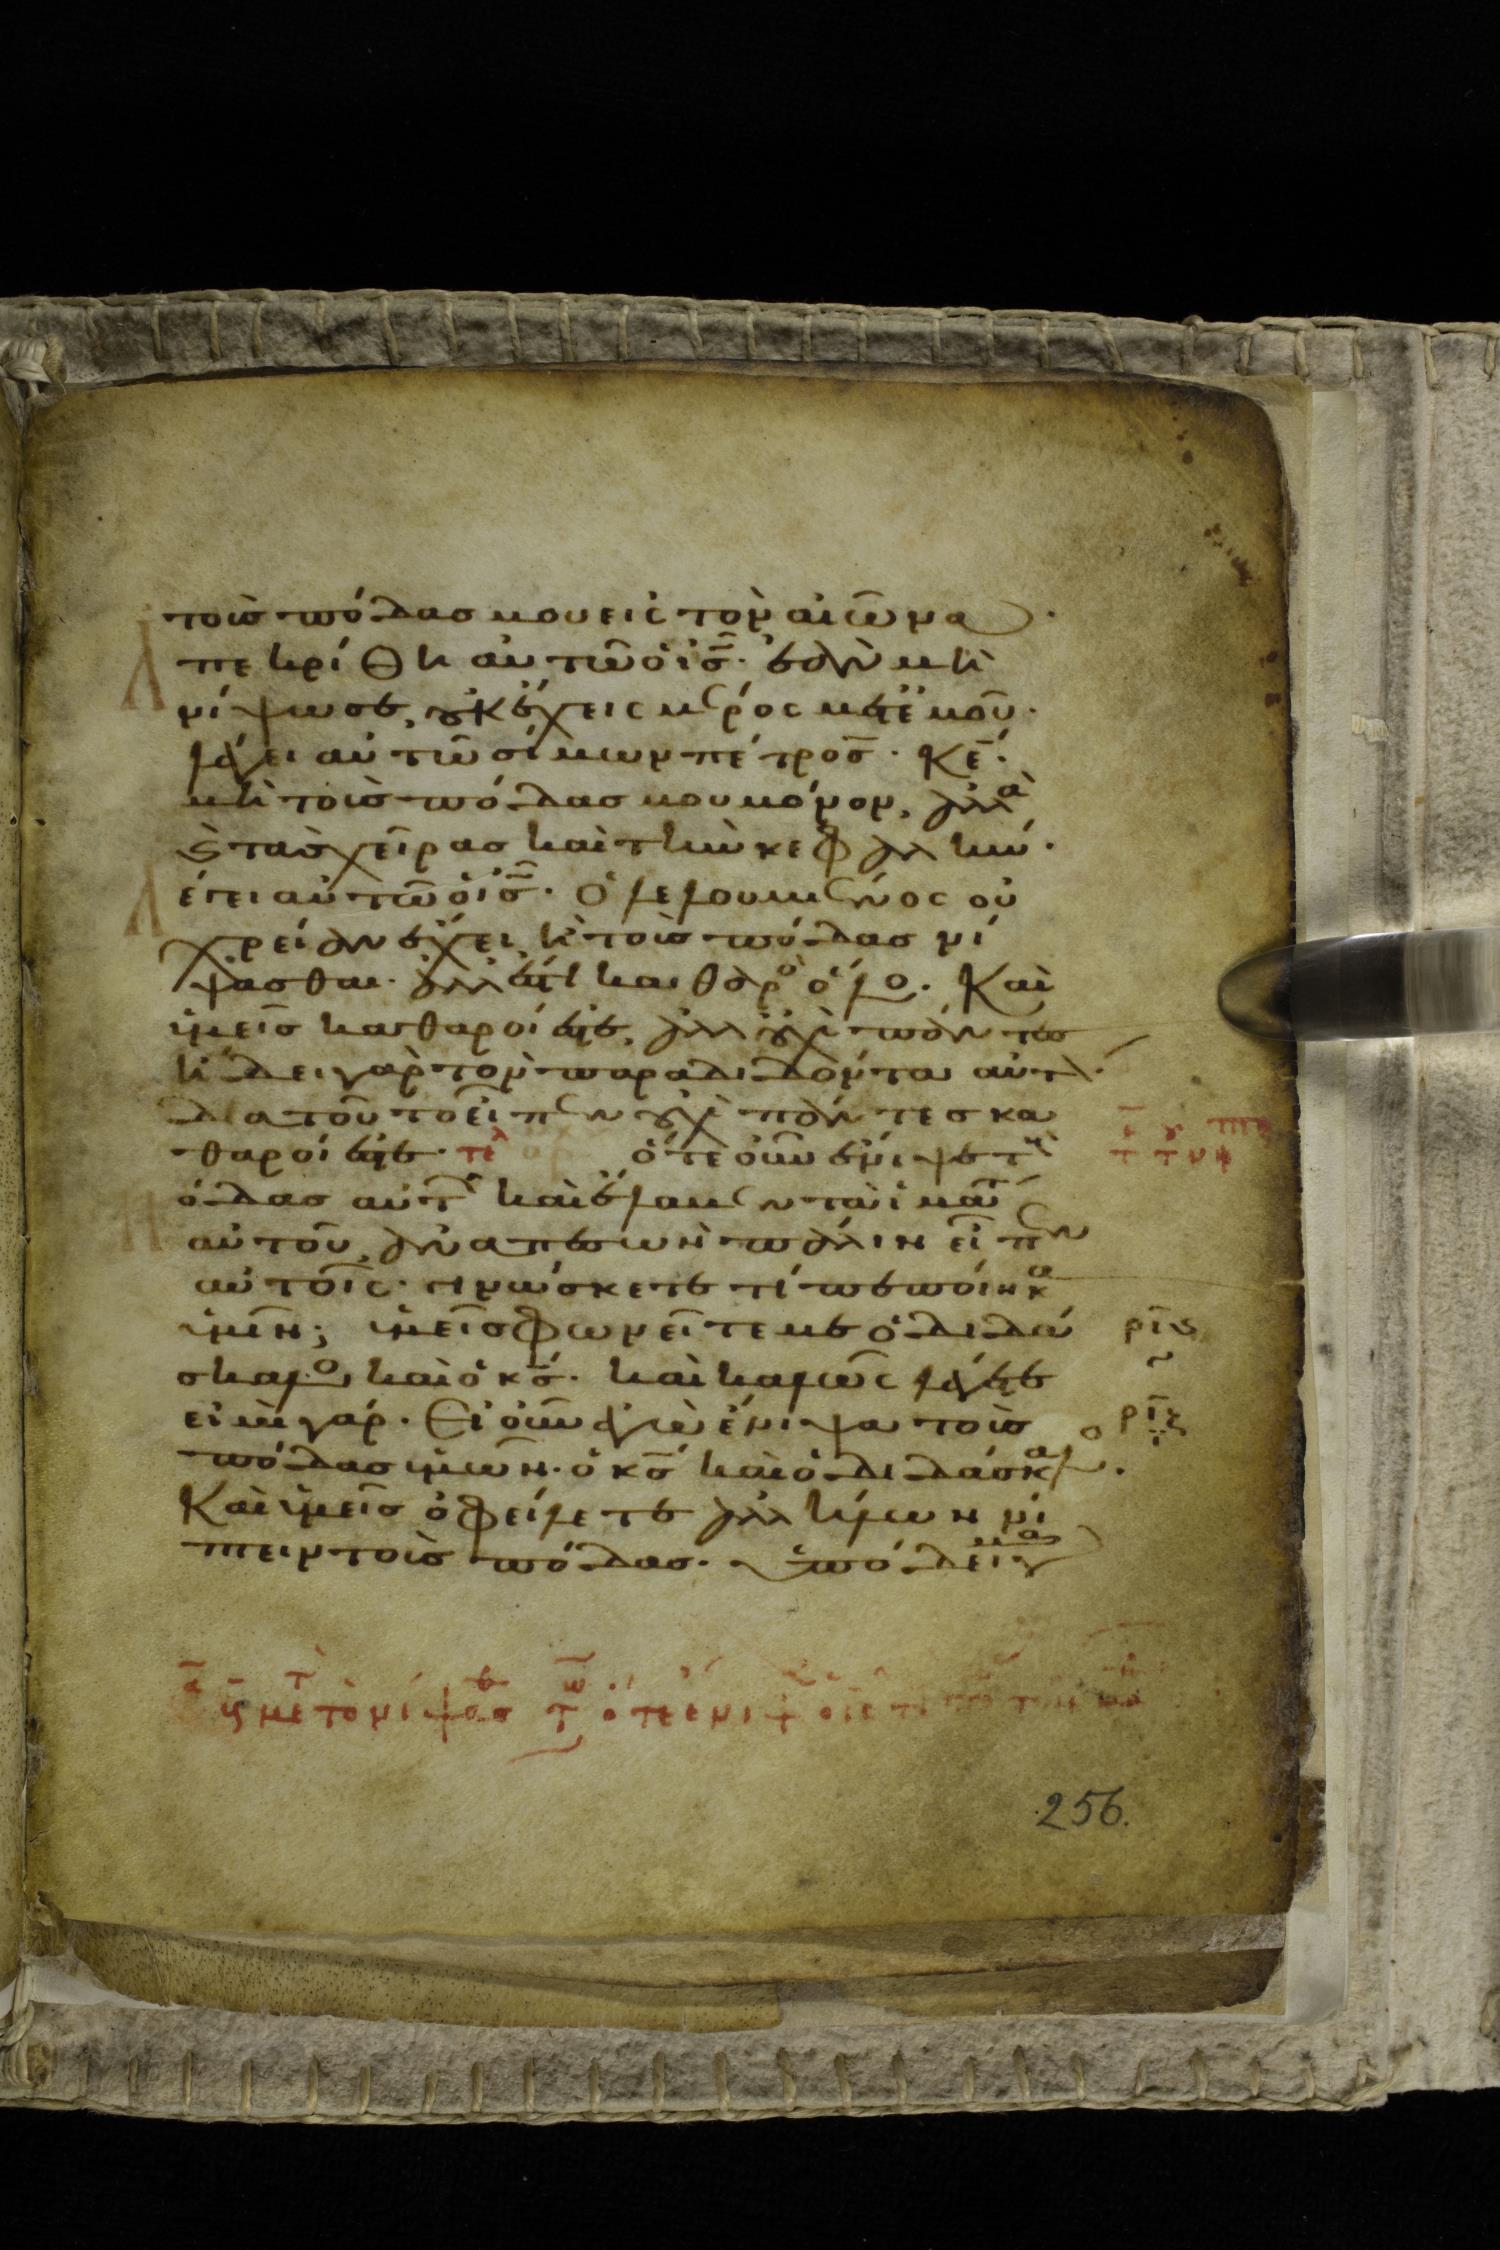 τοὺς πόδας μου εἰς τὸν αἰῶνα·
Ἀπεκρίθη αὐτῶ ὁ ις̅· ἐὰν μὴ
νίψω σε, οὐκ ἔχεις μέρος μετ' ἐμοῦ·
λέγει αὐτῶ σίμων πέτρος· κε̅·
μὴ τοὺς πόδας μου μόνον, ἀλλὰ
ϗ τὰς χεῖρας καὶ τὴν κεφαλήν·
Λέγει αὐτῶ ὁ ις̅· Ὁ λελουμένος οὐ
χρείαν ἔχει ἢ τοὺς πόδας νί
ψασθαι· ἀλλ' ἔστι καθαρὸς ὅλος. Καὶ
ὑμεῖς καθαροί ἐστε, ἀλλ' οὐχὶ πάντες
ἤδει γὰρ τὸν παραδιδόντα αὐτὸν·
διὰ τοῦτο εἶπεν οὐχὶ πάντες κα
θαροί ἐστε· τελ ὅτε οὖν ἔνιψε τοὺς
πόδας αὐτῶν καὶ ἔλαβεν τὰ ἱμάτια
αὐτοῦ, ἀναπεσὼν πάλιν εἶπεν
αὐτοῖς· γινώσκετε τί πεποίηκα
ὑμῖν; ὑμεῖς φωνεῖτέ με ὁ διδά
σκαλος καὶ ὁ κς̅· καὶ καλῶς λέγετε
εἰμὶ γάρ· Εἰ οὖν ἐγὼ ἔνιψα τοὺς
πόδας ὑμῶν· ὁ κς̅ καὶ ὁ διδάσκαλος·
Καὶ ὑμεῖς ὀφείλετε ἀλλήλων νί
πτειν τοὺς πόδας· ὑπόδειγμα
256.